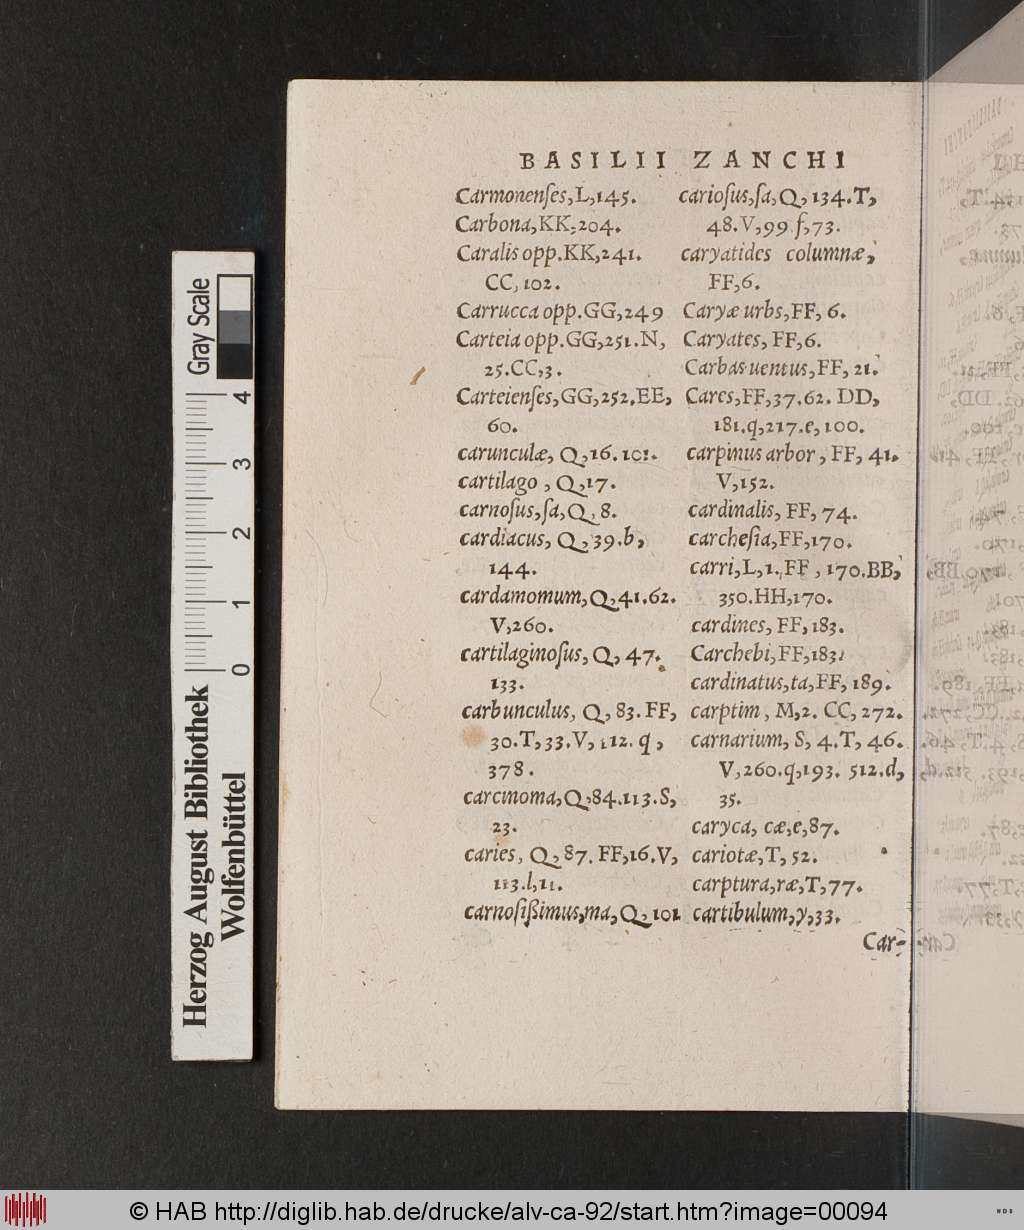 BASILII ZANCHI
Carmonenſes,L,145.
Carbona,KK,204.
Caralis opp.KK,241.
CC,102.
Carrucca opp.GG,249
Carteia opp.GG,251.N,
25.CC,3.
Carteienſes,GG,252.EE,
60.
carunculæ, Q,16.101.
cartilago , Q,17.
carnoſus,ſa,Q,8.
cardiacus, Q,39.b,
144.
cardamomum,Q,41.62.
V,260.
cartilaginoſus, Q, 47.
133.
carbunculus, Q, 83. FF,
30.T,33.V,112. q ,
378.
carcinoma,Q,84.113.S,
23.
caries, Q,87. FF,16.V,
113.l,11.
carnoſißimus,ma,Q,101
carioſus,ſa,Q, 134.T,
48.V,99 f,73.
caryatides columnæ,
FF,6.
Caryæ urbs,FF, 6.
Caryates, FF,6.
Carbas uentus,FF, 21.
Cares,FF,37.62. DD,
181.q,217.e,100.
carpinus arbor , FF, 41.
V,152.
cardinalis, FF, 74.
carcheſia,FF,170.
carri,L,1. FF , 170.BB,
350.HH,170.
cardines, FF, 183.
Carchebi,FF,183.
cardinatus,ta,FF, 189.
carptim , M,2. CC, 272.
carnarium, S, 4.T, 46.
V,260.q,193. 512.d,
35.
caryca, cæ,e,87.
cariotæ,T, 52.
carptura,ræ,T,77.
cartibulum,y,33.
Car-
Gray Scale
4
3
2
1
0
Herzog August Bibliothek
Wolfenbüttel
© HAB http://diglib.hab.de/drucke/alv-ca-92/start.htm?image=00094